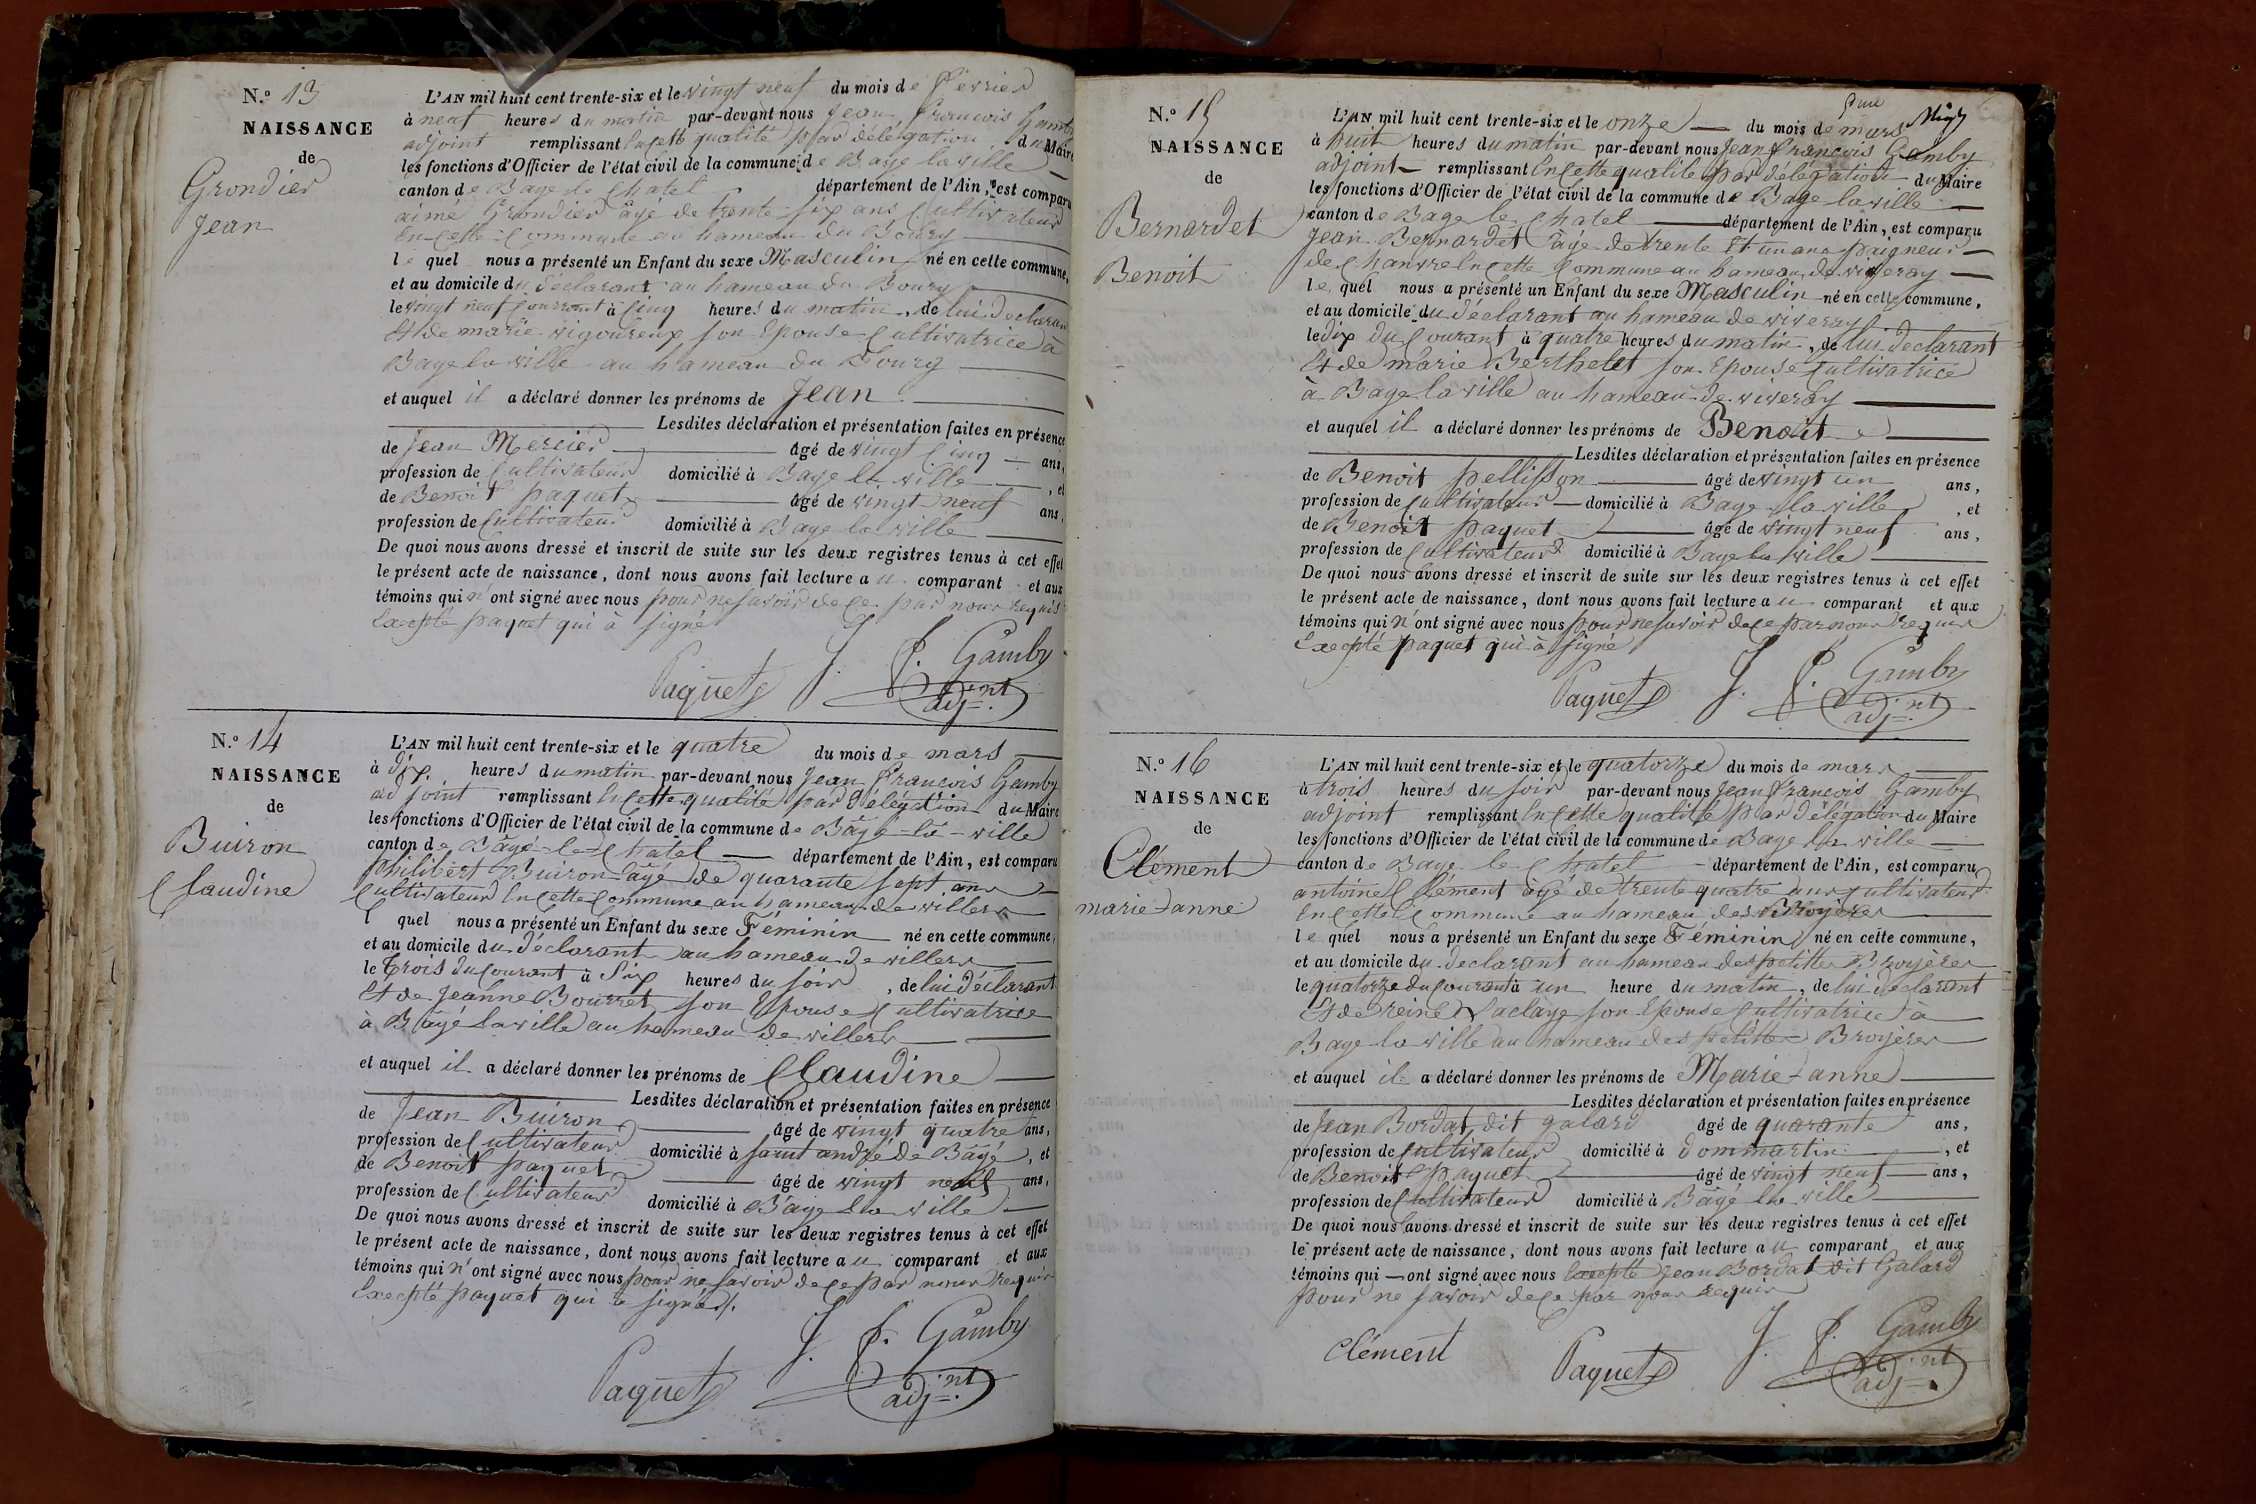 N.° 13
NAISSANCE
de
Grondier
Jean
L'AN mil huit cent trente-six et le vingt neuf du mois de février
à neuf heures du matin par-devant nous Jean François Gamby
adjoint remplissant en cette qualité par délégation du Maire
les fonctions d'Officier de l'état civil de la commune de Bage la ville
canton de Bage le Chatel département de l'Ain, est comparu
aimé Grondier âgé de trente six ans Cultivateur
En cette Commune au hameau du Bourg
le quel nous a présenté un Enfant du sexe Masculin né en cette commune,
et au domicile du déclarant au hameau du Bourg
le vingt neuf Courrant à Cinq heures du matin, de lui Déclarant
Et de marie vigoureux son Epouse Cultivatrice à
Bage la ville au hameau du Bourg
et auquel il a déclaré donner les prénoms de Jean
Lesdites déclaration et présentation faites en présence
de Jean Mercier âgé de vingt Cinq ans,
profession de Cultivateur domicilié à Bage la ville, et
de Benoit paquet âgé de vingt neuf ans,
profession de Cultivateur domicilié à Bage la ville
De quoi nous avons dressé et inscrit de suite sur les deux registres tenus à cet effet
le présent acte de naissance, dont nous avons fait lecture au comparant et aux
témoins qui n'ont signé avec nous pour ne savoir de ce par nous requis
Excepté paquet qui à signé
Paquet J. f. Gamby
adj.nt
N.° 14
NAISSANCE
de
Buiron
Claudine
L'AN mil huit cent trente-six et le quatre du mois de mars
à dix heures du matin par-devant nous Jean François Gamby
adjoint remplissant En cette qualité par délégation du Maire
les fonctions d'Officier de l'état civil de la commune de Bâgé-la-ville
canton de Bâgé-le-Chatel département de l'Ain, est comparu
philibert Buiron âgé de quarante sept ans
Cultivateur En cette Commune au hameau de villers
l quel nous a présenté un Enfant du sexe Féminin né en cette commune,
et au domicile du déclarant au hameau de villers
le trois du Courant à Six heures du soir, de lui déclarant
Et de Jeanne Bourret son Epouse Cultivatrice
à Bâgé la ville au hameau de villers
et auquel il a déclaré donner les prénoms de Claudine
Lesdites déclaration et présentation faites en présence
de Jean Buiron âgé de vingt quatre ans,
profession de Cultivateur domicilié à saint andré de Bagé, et
de Benoit paquet âgé de vingt neuf ans,
profession de Cultivateur domicilié à Bâgé la ville
De quoi nous avons dressé et inscrit de suite sur les deux registres tenus à cet effet
le présent acte de naissance, dont nous avons fait lecture au comparant et aux
témoins qui n'ont signé avec nous pour ne savoir de ce par nous requis
Excepté paquet qui a signé.
J. f. Gamby
Paquet adj.nt
N.° 15
NAISSANCE
de
Bernardet
Benoit
L'AN mil huit cent trente-six et le onze du mois de mars
à huit heures du matin par-devant nous Jean François Gamby
adjoint remplissant En cette qualité par délégation du Maire
les fonctions d'Officier de l'état civil de la commune de Bage la ville
canton de Bage le Chatel département de l'Ain, est comparu
Jean Bernardet âgé de trente Et un ans paigneur
de Chanvre En cette Commune au hameau de viveray
le quel nous a présenté un Enfant du sexe Masculin né en cette commune,
et au domicile du déclarant au hameau de viveray
le dix du Courant à quatre heures du matin, de lui declarant
Et de marie Berthelet son Epouse Cultivatrice
à Bage la ville au hameau de viveray
et auquel il a déclaré donner les prénoms de Benoit
Lesdites déclaration et présentation faites en présence
de Benoit pellisson âgé de vingt un ans,
profession de Cultivateur domicilié à Bage la ville, et
de Benoit paquet âgé de vingt neuf ans,
profession de Cultivateur domicilié à Bage la ville
De quoi nous avons dressé et inscrit de suite sur les deux registres tenus à cet effet
le présent acte de naissance, dont nous avons fait lecture au comparant et aux
témoins qui n'ont signé avec nous pour ne savoir de ce par nous requis
Excepté paquet qui à signé
Paquet J. f. Gamby
adj.nt
N.° 16
NAISSANCE
de
Clément
marie-anne
L'AN mil huit cent trente-six et le quatorze du mois de mars
à trois heures du soir par-devant nous Jean François Gamby
adjoint remplissant En cette qualité par délégation du Maire
les fonctions d'Officier de l'état civil de la commune de Bage la ville
canton de Bage le Chatel département de l'Ain, est comparu
antoine Clément âgé de trente quatre ans Cultivateur
En cette Commune au hameau des Broyères
le quel nous a présenté un Enfant du sexe Féminin né en cette commune,
et au domicile du déclarant au hameau des petittes Broyères
le quatorze du Courant à un heure du matin, de lui déclarant
Et de reine Laclaye son Epouse Cultivatrice à
Bage la ville au hameau des petittes Broyères
et auquel il a déclaré donner les prénoms de Marie-anne
Lesdites déclaration et présentation faites en présence
de Jean Bordat dit galard âgé de quarante ans,
profession de Cultivateur domicilié à dommartin, et
de Benoit paquet âgé de vingt neuf ans,
profession de Cultivateur domicilié à Bâgé la ville
De quoi nous avons dressé et inscrit de suite sur les deux registres tenus à cet effet
le présent acte de naissance, dont nous avons fait lecture au comparant et aux
témoins qui ont signé avec nous Excepté Jean Bordat dit Galard
pour ne savoir de ce par nous requis
Clément Paquet J. f. Gamby
adj.nt